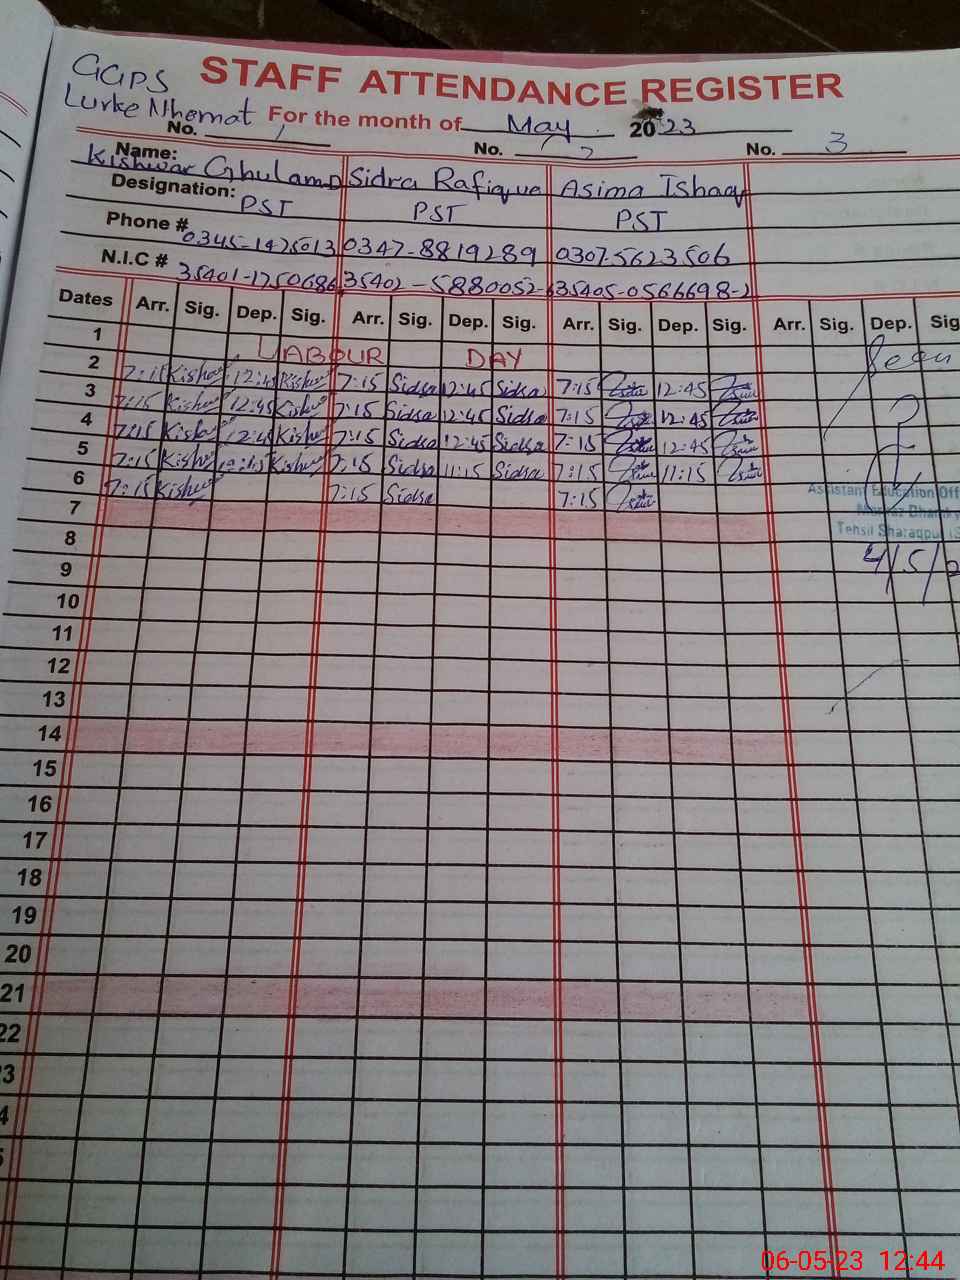 GGPS STAFF ATTENDANCE REGISTER
Lurke Nhemat For the month of May 2023
No. 1 No. 2 No. 3
Name: Kishwar Ghulam Sidra Rafique Asima Ishaq
Designation: PST PST PST
Phone # 0345-1425013 0347-8819289 0307-5623506
N.I.C # 35401-1750686 35402-5880052-6 35405-0566698-2
Dates Arr. Sig. Dep. Sig. Arr. Sig. Dep. Sig. Arr. Sig. Dep. Sig. Arr. Sig. Dep. Sig
1 LABOUR DAY
2 7:15 Kishwar 12:45 Kishwar 7:15 Sidra 12:45 Sidra 7:15 12:45
3 7:15 Kishwar 12:45 Kishwar 7:15 Sidra 12:45 Sidra 7:15 12:45
4 7:15 Kishwar 12:45 Kishwar 7:15 Sidra 12:45 Sidra 7:15 12:45
5 7:15 Kishwar Kishwar 7:15 Sidra 11:15 Sidra 7:15 11:15
6 7:15 Kishwar 7:15 Sidra 7:15
7
8
9
10
11
12
13
14
15
16
17
18
19
20
21
22
3
4
5
Seen
Assistant Education Off
Tehsil Sharaqpur
4/5/2
06-05-23 12:44